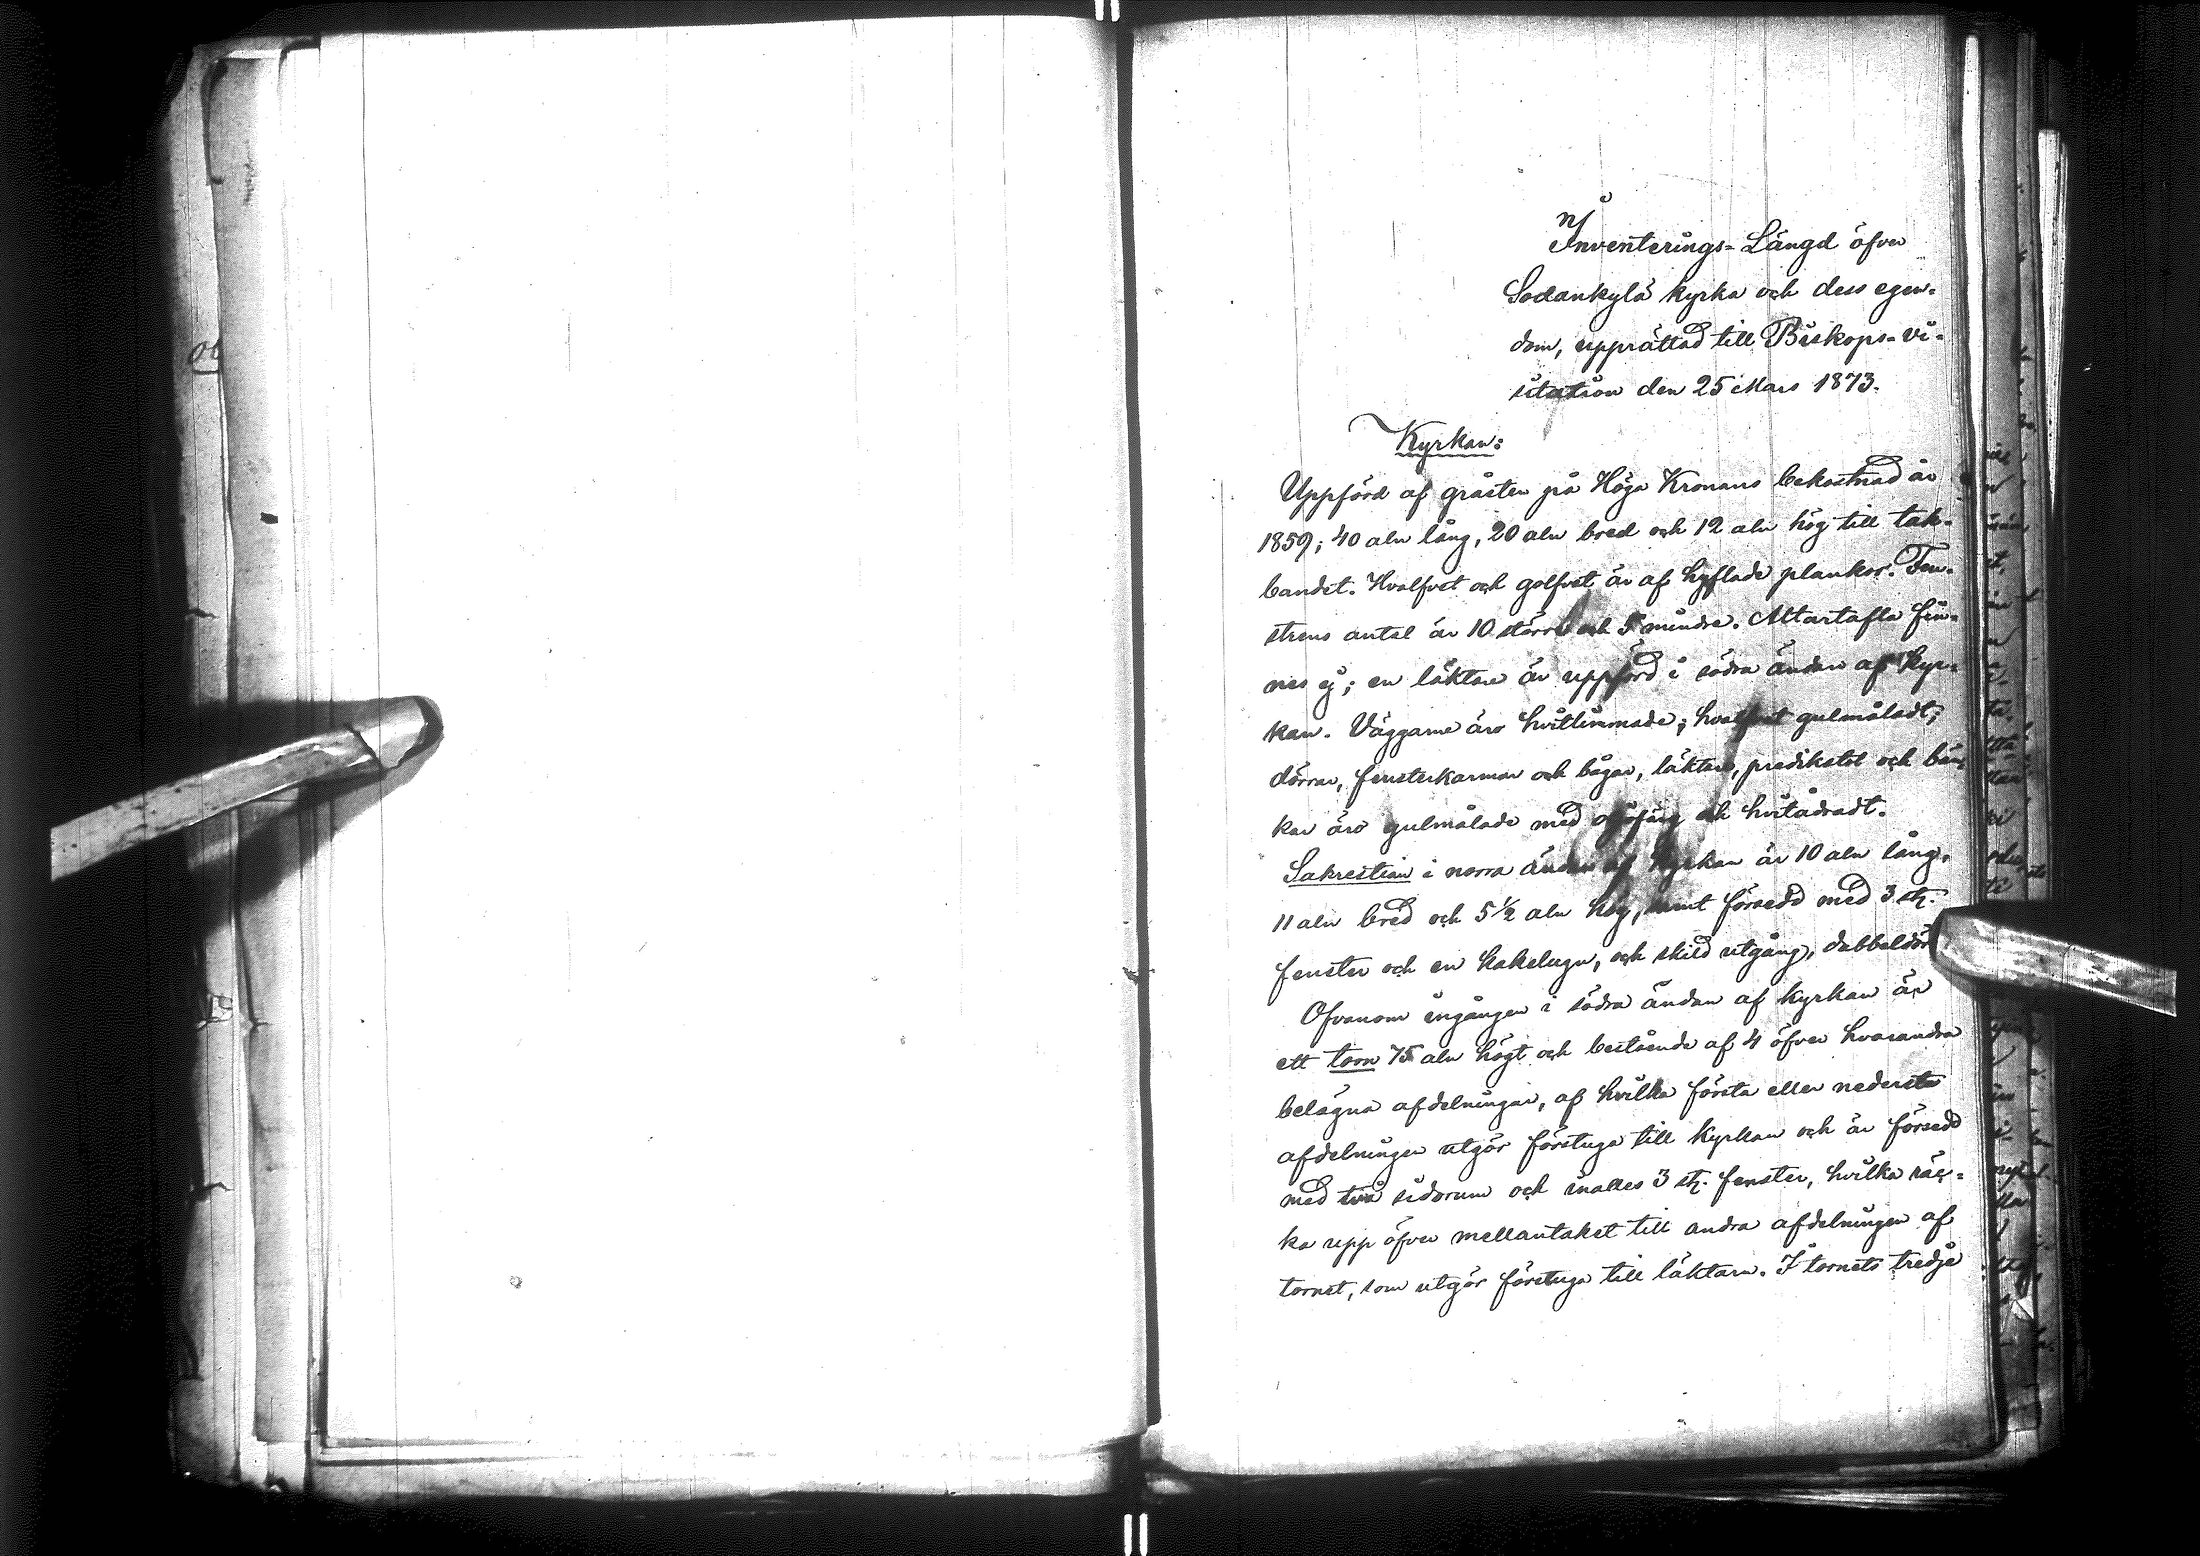 Inventerings-Längd öfver
Sodankylä kyrka och dess egen-
dom, upprättad till Biskops-vi-
sitation den 25 Mars 1873.
Kyrkan:
Uppförd af gråsten på Höga Kronans bekostnad år
1859; 40 aln lång, 20 aln bred och 12 aln hög till tak-
bandet. Hvalfvet och golfvet är af hyflade plankor. Fen-
strens antal är 10 större och 5 mindre. Altartafla fin-
nes ej; en läktare är uppförd i södra ändan af kyr-
kan. Väggarne äro hvitlimmade; hvalfvet gulmåladt;
dörrar, fensterkarmar och bågar, läktare, predikstol och bän-
kar äro gulmålade med oljefärg och hvitådradt.
Sakrestian i norra ändan af kyrkan är 10 aln lång,
11 aln bred och 5 1/2 aln hög, samt försedd med 3 st.
fenster och en kakelugn, och skild utgång, dubbeldör
Ofvanom ingången i södra ändan af kyrkan är
ett torn 75 aln högt och bestående af 4 öfver hvarandra
belägna afdelningar, af hvilka första eller nedersta
afdelningen utgör förstuga till kyrkan och är försedd
med två sidorum och inalles 3 st. fenster, hvilka räc-
ka upp öfver mellantaket till andra afdelningen af
tornet, som utgör förstuga till läktarn. I tornets tredje